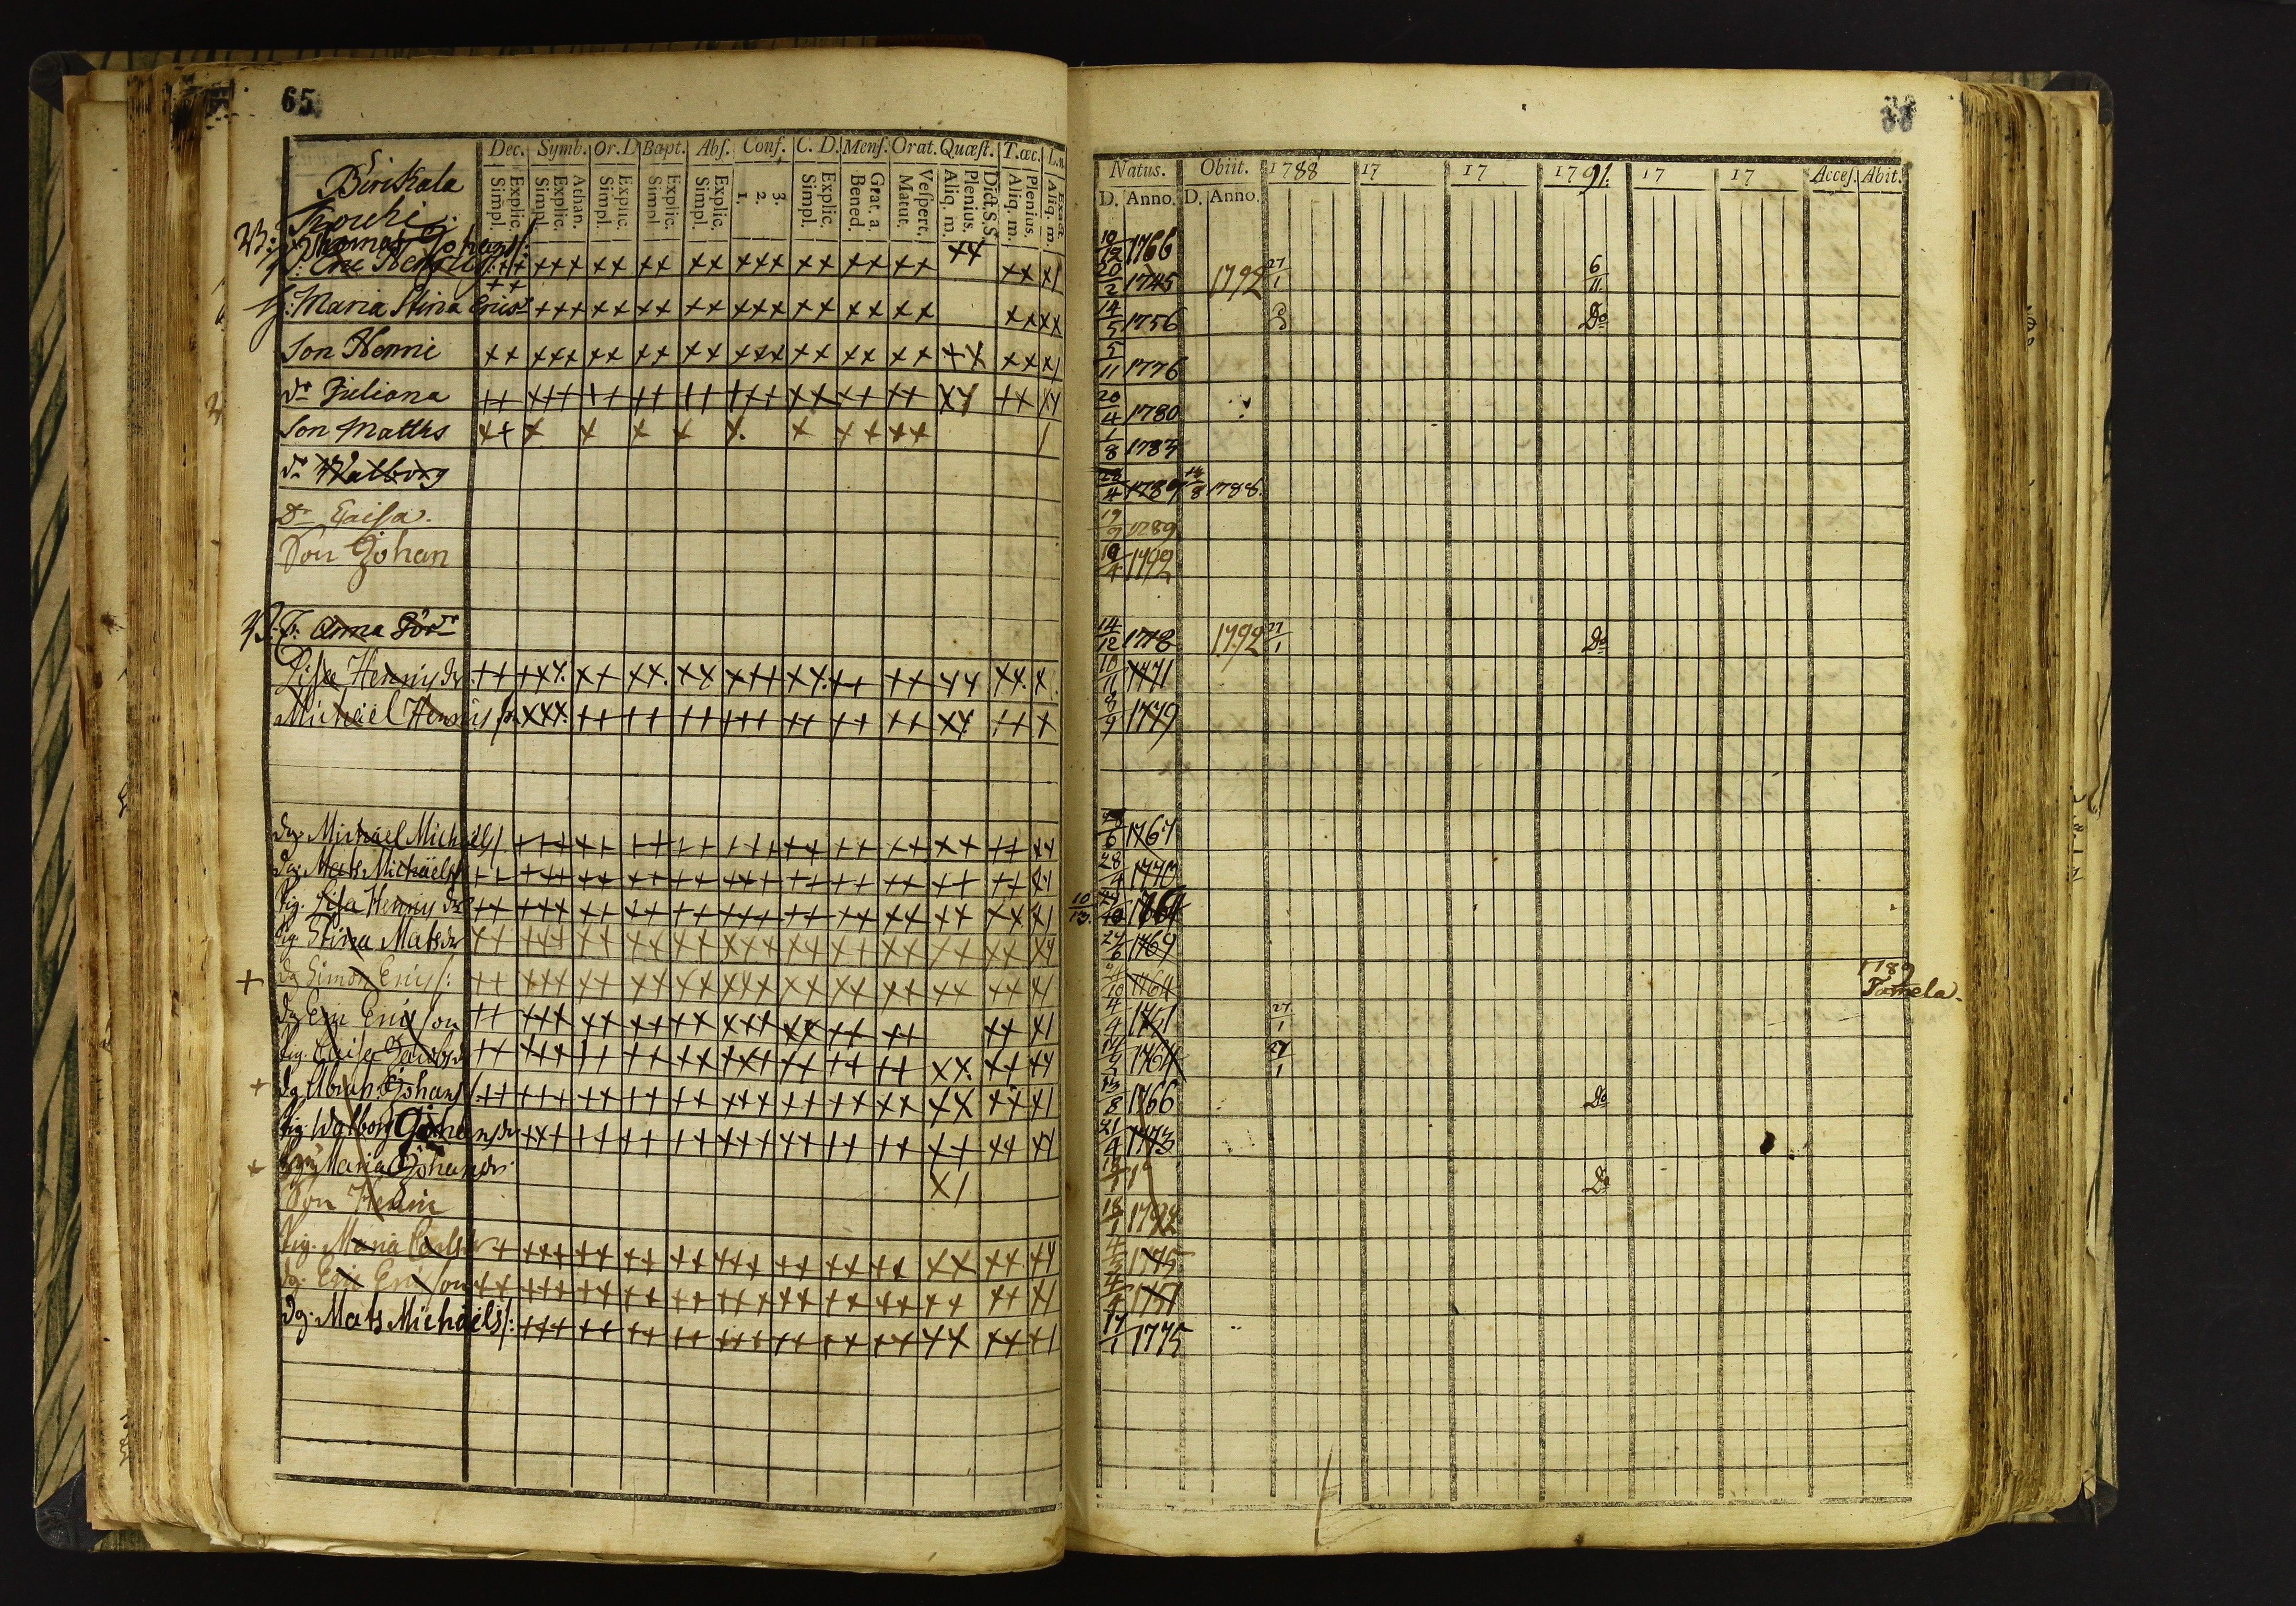 65
Dec. Symb. Or. D Bapt. Abs. Conf. C. D. Mens. Orat. Quæst. T. œc. L.
Explic. Simpl. Athan. Explic. Simpl. Explic. Simpl. Explic. Simpl. Explic. Simpl. 3. 2. 1. Explic. Simpl. Grat. a. Bened. Vespert. Matut. Dict. S.S. Plenius. Aliq. m. Plenius. Aliq. m. Exact. Aliq. m.
Knouhi
Thomas Johans:
Eric Henrics:
h: Maria Stina Ericsdr
Son Henric
Dr Juliana
Son Matths
Dr Walborg
Dr Caisa.
Son Johan
Anna
Lisa Henricsdr
Michael Henrics
dg. Michael Michaels
dg. Mats Michaels
Pig. Lisa Henricsdr
Pig Stina Matsdr
dg Simon Erics:
dg Eric Ericson
Pig. Caisa Jacobsdr
dg Abrah: Johans
Pig. Walborg Johansdr
Maria Johansdr
Son Henric
Pig. Maria Carlsdr
dg. Eric Ericson
dg. Mats Michaels:
Natus. Obiit. 1788 17 17 1791. 17 17 Acces. Abit.
D. Anno. D. Anno.
10/12 1766
20/2 1745 1792 27/1 6/11
14/5 1756 Do
5/11 1776
20/4 1780
1/8 1783
28/4 1787 14/8 1788.
19/9 1789
10/4 1792
14/12 1718 1792 27/1 Do
10/11 1771
8/9 1779
6 1767
28/4 1770
10/13. 1764
24/6 1769
10 1764 1789
4/4 1751 27/1
1764 27/1
13/8 1766 Do
21/4 1773
Do
18/1 1792
4/3 1775
4/4 1751
17/1 1775